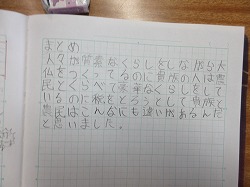 まとめ
人々が質素なくらしをしながら大
仏をつくってるのに貴族の人は農
民とくらべて豪華なくらしをして
いるのに税をとろうとして貴族と
農民はこんなにも違いがあるんだ
と思いました。